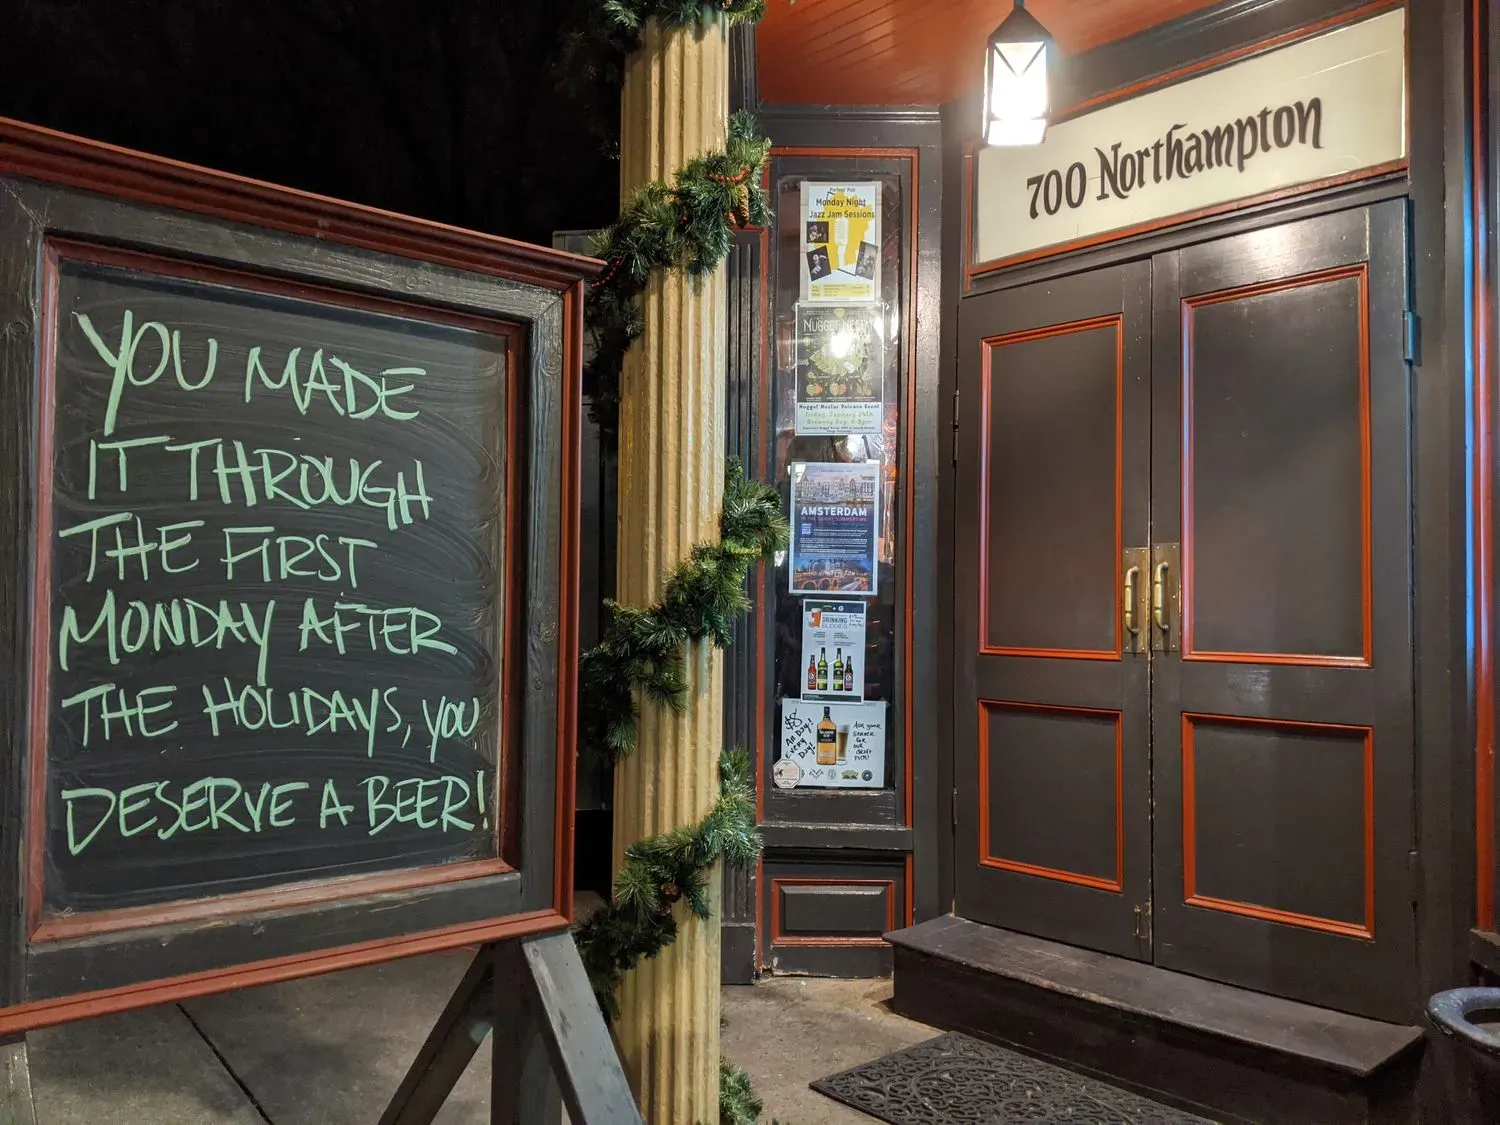 YOU MADE
IT THROUGH
THE FIRST
MONDAY AFTER
THE HOLIDAYS, YOU
DESERVE A BEER!
700 Northampton
Porters' Pub
Monday Night
Jazz Jam Sessions
NUGGET NECTAR
Nugget Nectar Release Event
Friday, January 24th
AMSTERDAM
IN THE SUNNY SUMMERTIME
DRINKING
BUDDIES
$8
An Day!
Every
Day!
Ask your
server
for
our
draft
pick!